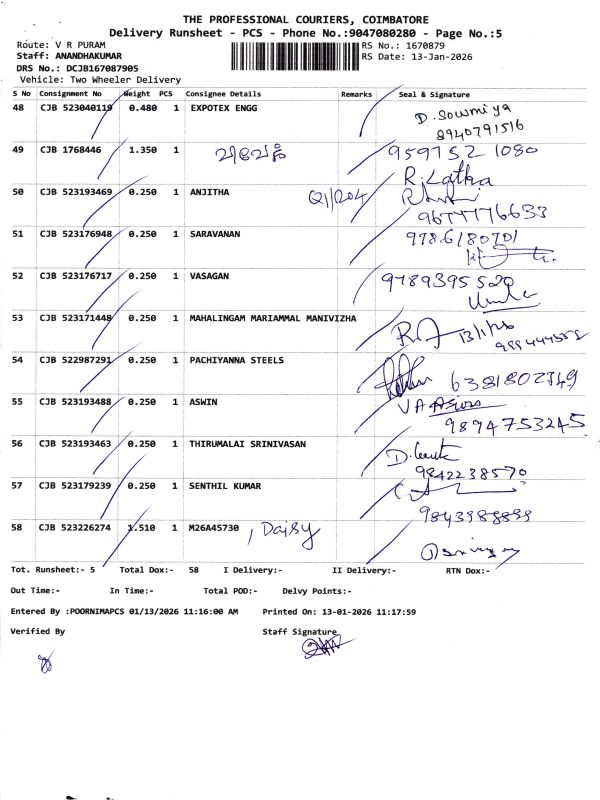 THE PROFESSIONAL COURIERS, COIMBATORE
Delivery Runsheet - PCS - Phone No.:9047080280 - Page No.:5
Route: V R PURAM
RS No.: 1670879
Staff: ANANDHAKUMAR
RS Date: 13-Jan-2026
DRS No.: DCJB167087905
Vehicle: Two Wheeler Delivery
S No Consignment No Weight PCS Consignee Details Remarks Seal & Signature
48 CJB 523040119 0.480 1 EXPOTEX ENGG D. Sowmiya
8940791516
49 CJB 1768446 1.350 1 959752 1080
R. Latha
50 CJB 523193469 0.250 1 ANJITHA
9677776633
51 CJB 523176948 0.250 1 SARAVANAN 9786180701
52 CJB 523176717 0.250 1 VASAGAN 9789395520
53 CJB 523171448 0.250 1 MAHALINGAM MARIAMMAL MANIVIZHA 13/1/26
54 CJB 522987291 0.250 1 PACHIYANNA STEELS 6381802749
55 CJB 523193488 0.250 1 ASWIN V A Aswin
9894753245
56 CJB 523193463 0.250 1 THIRUMALAI SRINIVASAN
9842238570
57 CJB 523179239 0.250 1 SENTHIL KUMAR
58 CJB 523226274 1.510 1 M26A45730 , Daisy
Tot. Runsheet:- 5 Total Dox:- 58 I Delivery:- II Delivery:- RTN Dox:-
Out Time:- In Time:- Total POD:- Delvy Points:-
Entered By :POORNIMAPCS 01/13/2026 11:16:00 AM Printed On: 13-01-2026 11:17:59
Verified By Staff Signature